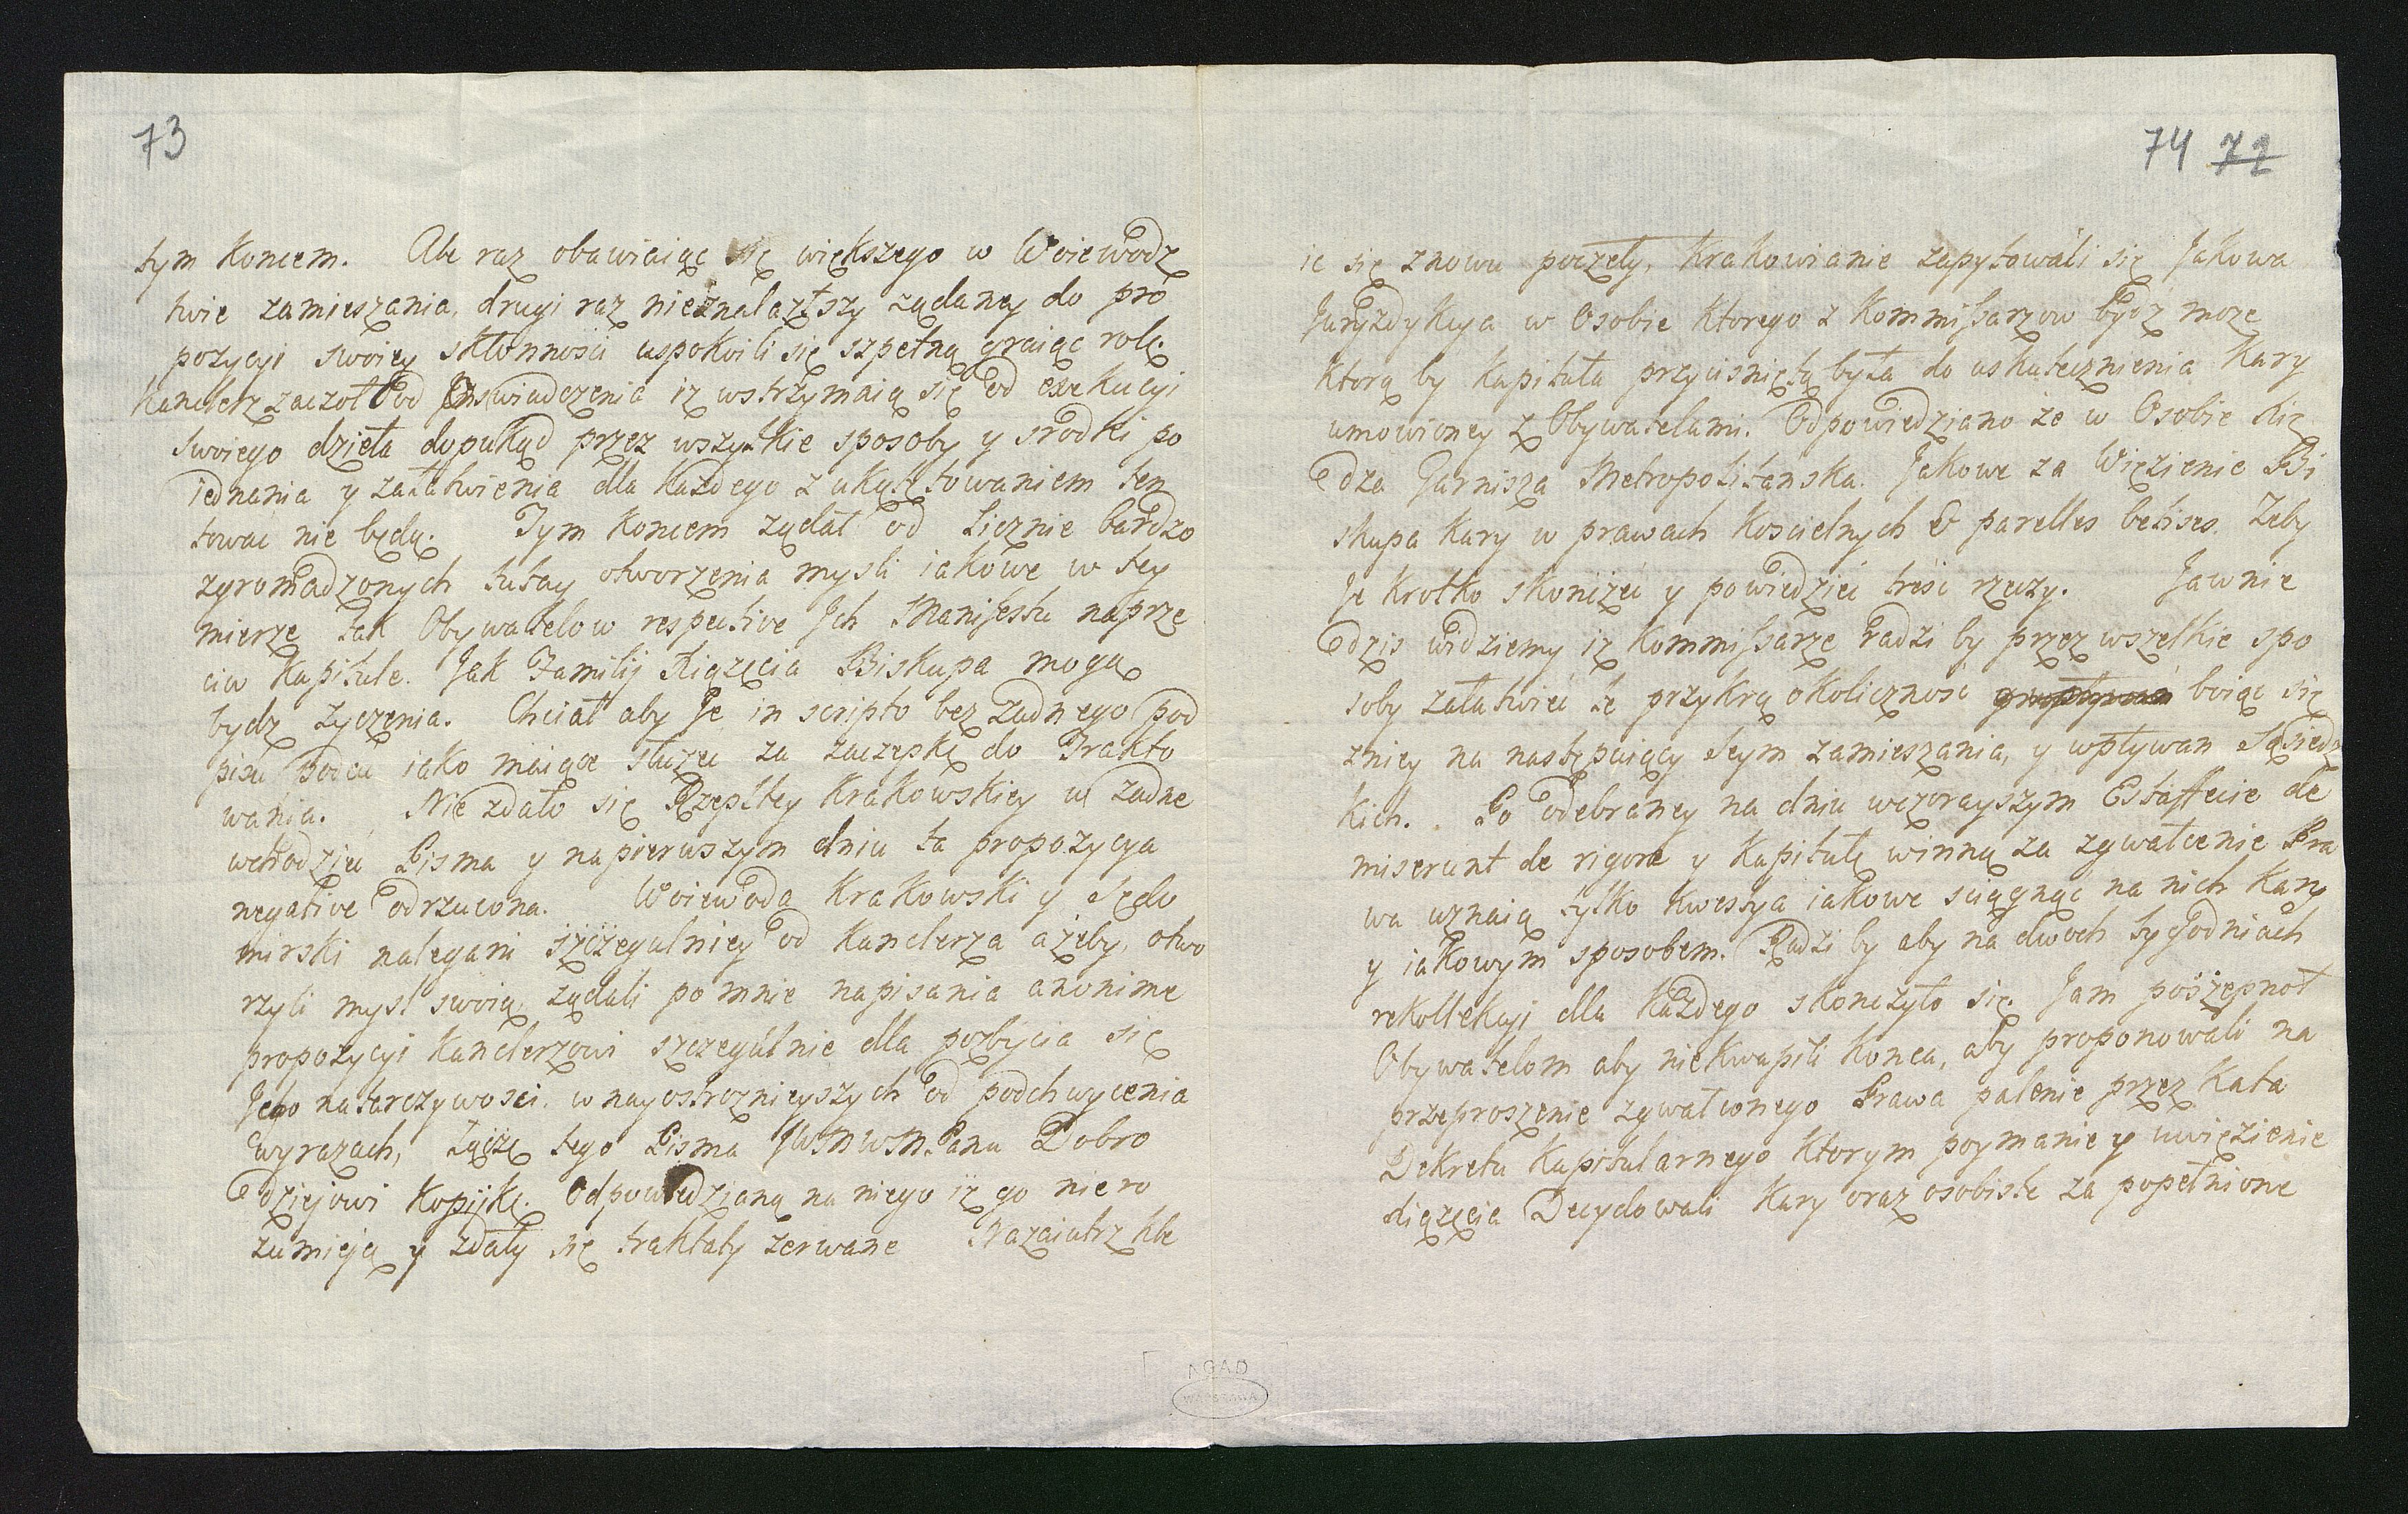 73
tym Koncem. Ale raz obawiaiąc się większego w Woiewodz
twie zamieszania, drugi raz nieznalazszy żądaney do pro
pozycyi swoiey skłonnosci uspokoili się szpetną graiąc rolę.
Kanclerz zaczoł od Inswiadczenia iz wstrzymaią się od exekucyi
swoiego dzieła dopukąd przez wszystkie sposoby y srodki po
iednania y załatwienia dla każdego z ukąsztowaniem ten
towac nie będą. Tym Koncem żądał od Licznie bardzo
zgromadzonych tutay otworzenia mysli iakowe w tey
mierze tak Obywatelow respective Ich Manifestu naprze
ciw Kapitule. Jak Familij Xiążęcia Biskupa mogą
bydz życzenia. Chciał aby Je in scripto bez żadnego pod
pisu podać iako maiące służyć za zaczepkę do Trakto
wania. Nie zdało się Rzepltey Krakowskiey w żadne
wchodzić Pisma y na pierwszym dniu ta propozycya
negative odrzucona. Woiewoda Krakowski y Sędo
mirski nalegani szczegulniey od Kanclerza ażeby otwo
rzyli mysl swoią, żądali po mnie napisania anonime
propozycyi Kanclerzowi szczegulnie dla pozbycia się
Jego natarczywosci. w nayostroznieyszych od podchwycenia
wyrazach, Łączę tego Pisma JWMWM Panu Dobro
dziejowi Kopijkę. Odpowiedzianą na niego iż go nie ro
zumieją y zdały się traktaty zerwane Nazaiutrz kle
74 72
ic się znowu poczęły, Krakowianie zapytowali się Jakowa
Juryzdykcya w Osobie Ktorego z Kommissarzow bydz moze
Ktorą by Kapituła przycisniętą była do uskutecznienia Kary
umowioney z Obywatelami. Odpowiedziano że w Osobie Xię
dza Garnisza Metropolitanska. Jakowe za Więzienie Bi
skupa Kary w prawach Koscielnych & parelles betises. Żeby
Je Krotko skończyć y powiedzieć tresć rzeczy. Jawnie
dzis widziemy iz Kommissarze radzi by przez wszelkie spo
soby załatwić tę przykrą okolicznosć boiąc się
zniey na następuiący Seym zamieszania, y wpływan Sąsiedz
kich. Po odebraney na dniu wczorayszym Estaffecie de
miserunt de rigore y Kapitułę winną za zgwałcenie Pra
wa uznaią tylko Kwestya iakowe sciągnąć na nich Kary
y iakowym sposobem. Radzi by aby na dwoch tygodniach
rekollekcyi dla Każdego skonczyło się. Jam poszepnoł
Obywatelom aby niekwapili Konca, aby proponowali na
przeproszenie zgwałconego Prawa palenie przez Kata
Dekretu Kapitularnego Ktorym poymanie y uwięzienie
Xiążęcia Decydowali Kary oraz osobiste za popełnione
AGAD
WARSZAWA